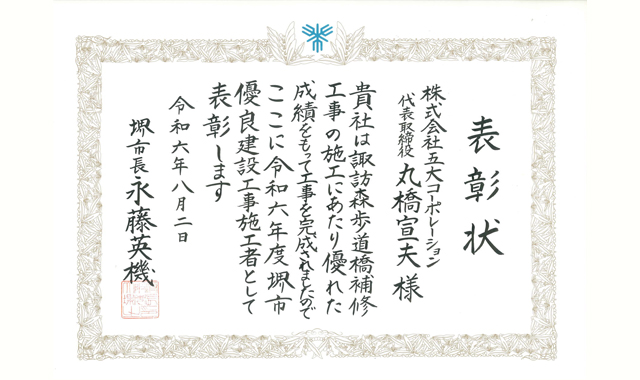 表彰状
株式会社五大コーポレーション
代表取締役 丸橋宣夫 様
貴社は諏訪森歩道橋補修
工事の施工にあたり優れた
成績をもって工事を完成されましたので
ここに令和六年度堺市
優良建設工事施工者として
表彰します
令和六年八月二日
堺市長 永藤英機